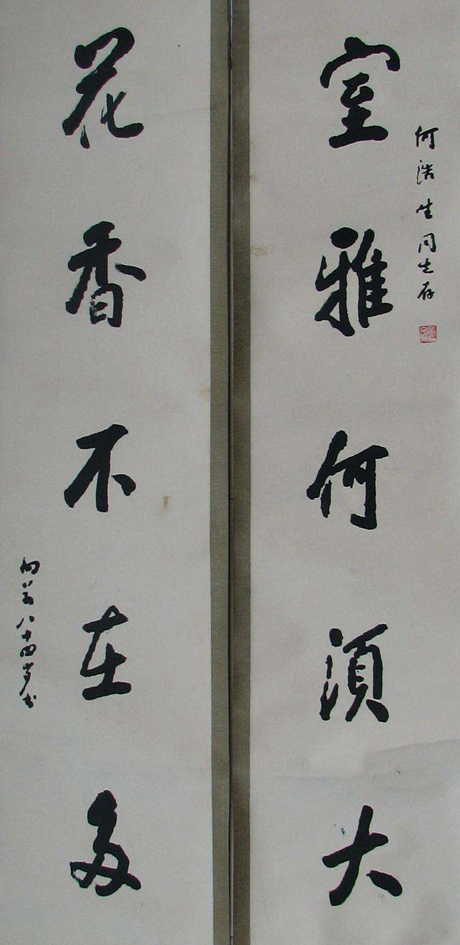 何浩生同志存
室雅何須大
花香不在多
八十四岁书